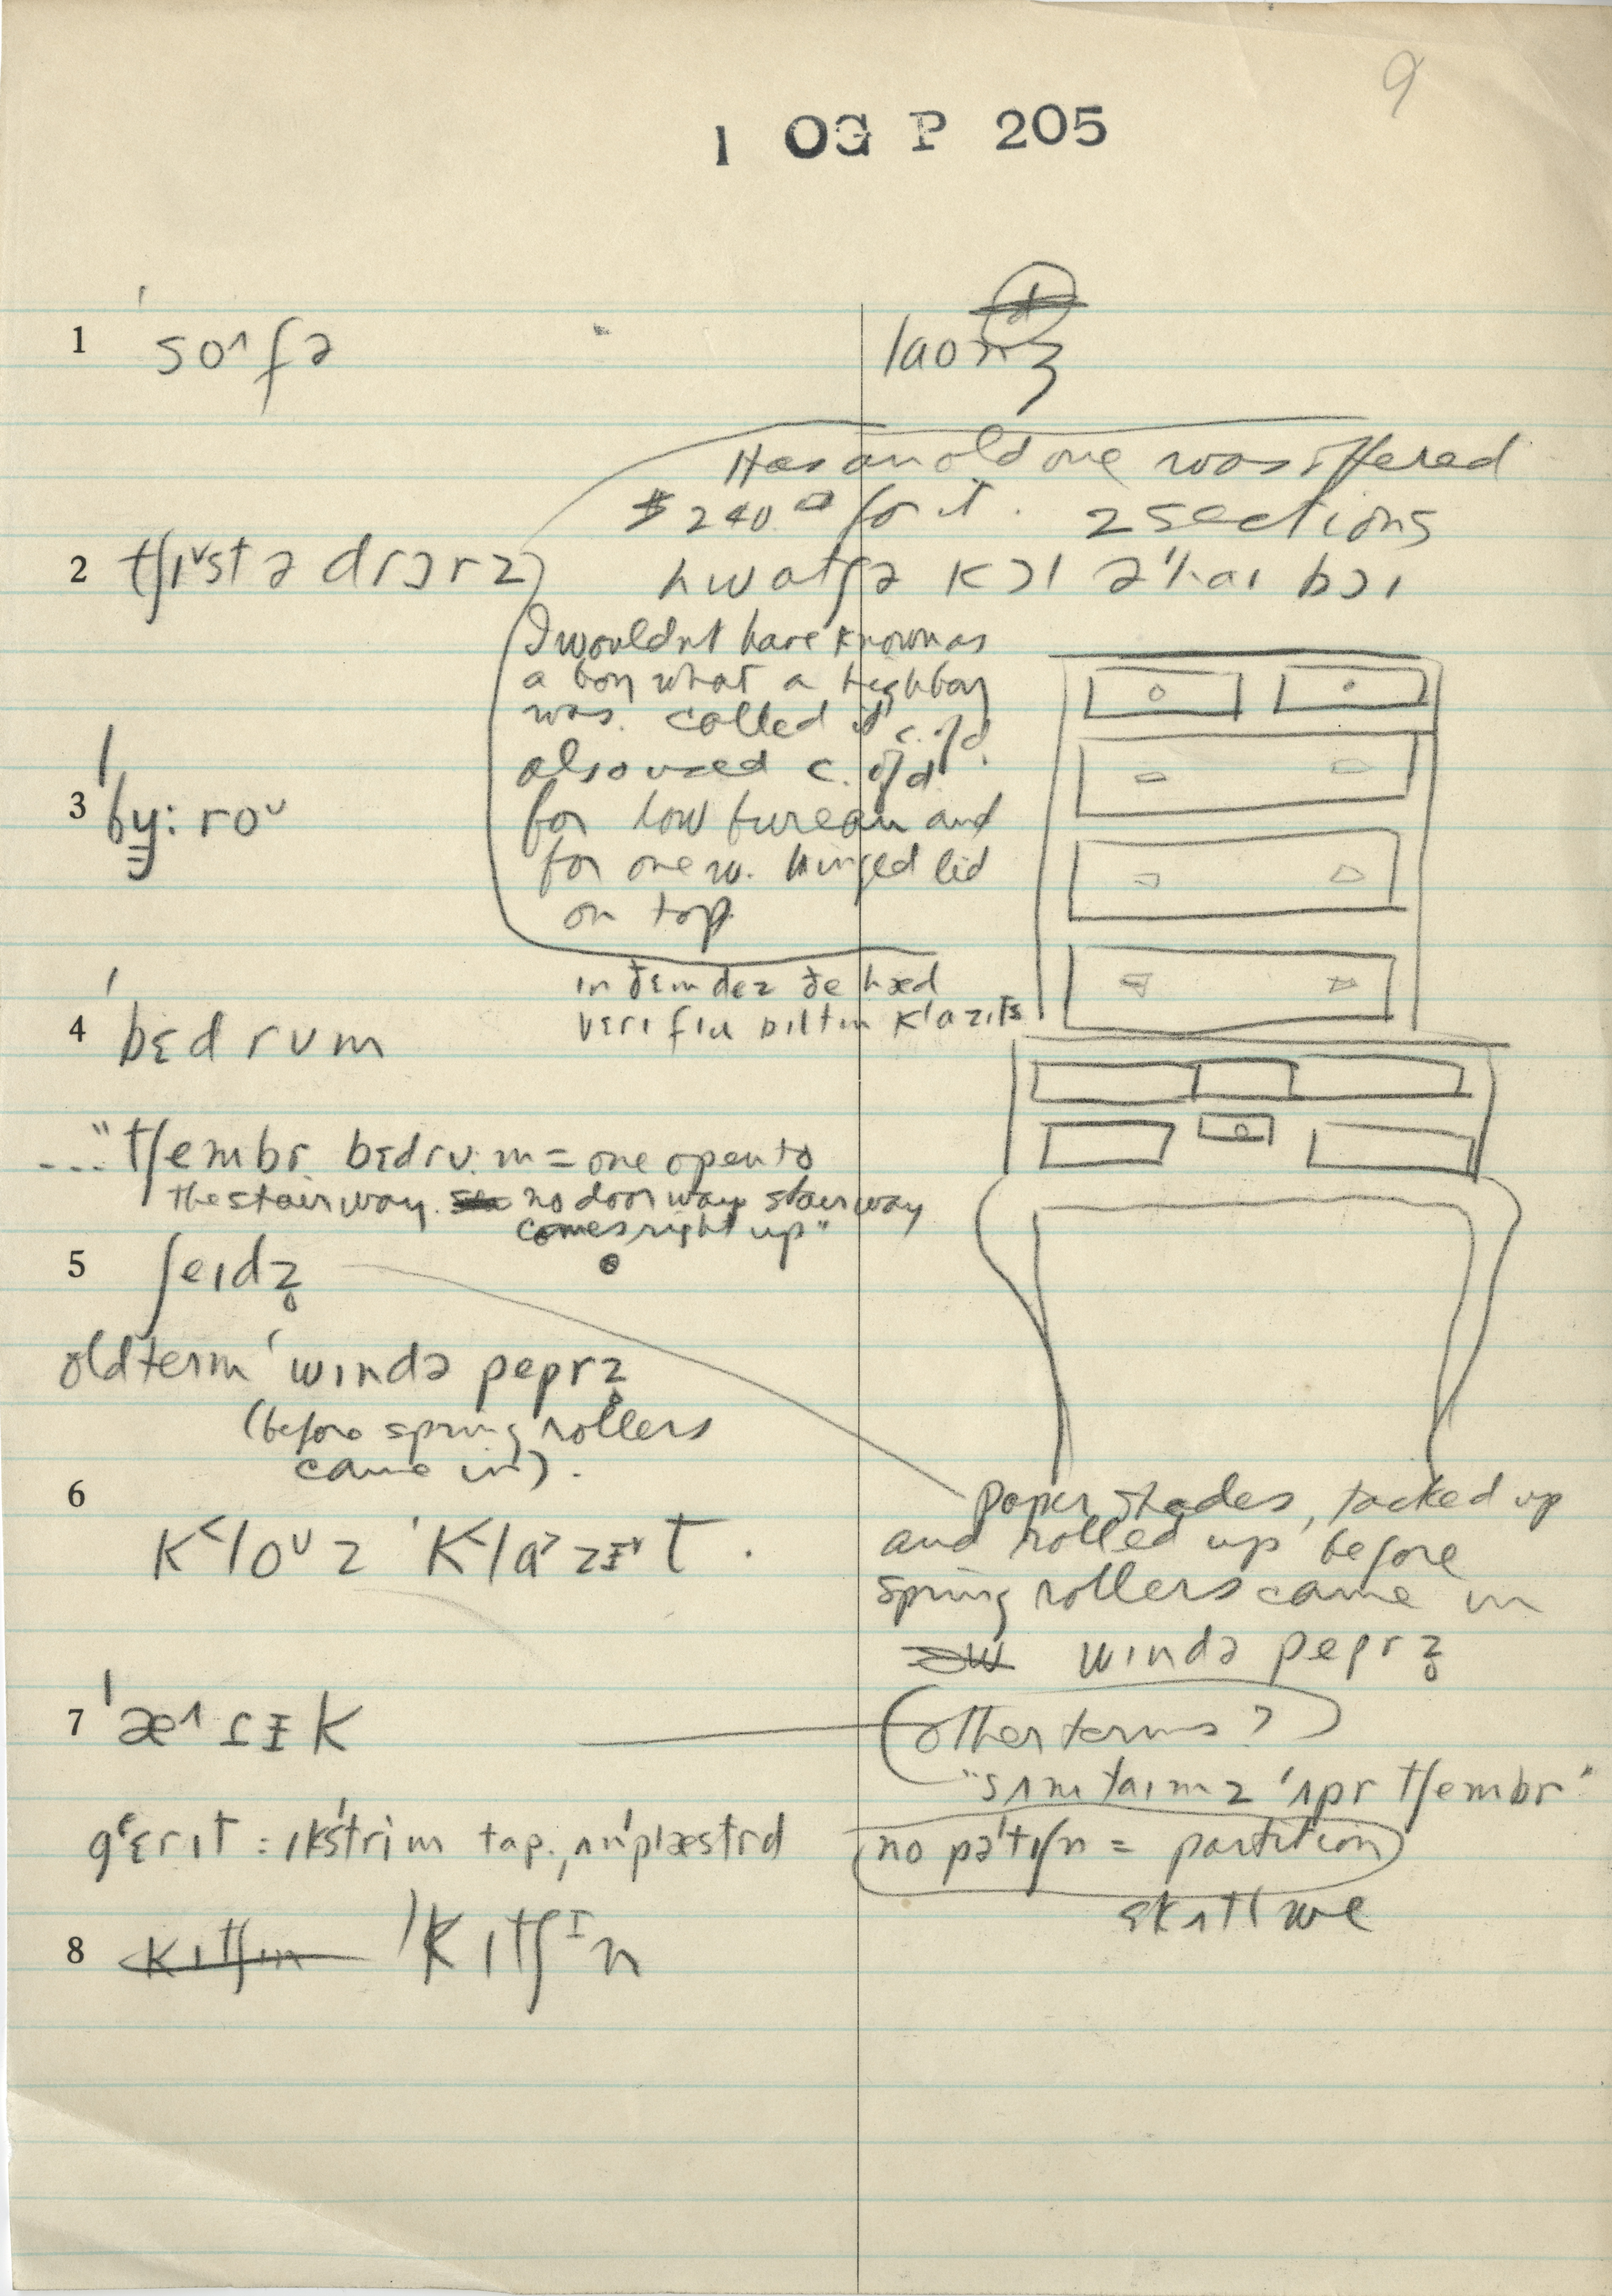 9
1 OG P 205
1 ˈso˄fə
laonʒ
Has an old one was offered
$240.00 for it. 2 sections
2 tʃɪ˅st ə drɔrz
hwatʃə kɔl ə ˈhaɪ bɔɪ
I wouldnt have known as
a boy what a highboy
was. called it c. of d.
also used c. of d.
for low bureau and
for one w. hinged lid
on top.
3 ˈby̳: roᵛ
ɪn ðɛm dez ðe hæd
vɛrɪ fɪu bɪltɪn klazɪts
4 ˈbɛd rʊm
..."tʃembr bɛdru.m = one open to
the stairway. no doorway stairway
comes right up"
5 ʃeɪdz̥
old term ˈwɪndə peprz̥
(before spring rollers
came in).
paper shades, tacked up
and rolled up before
spring rollers came in
wɪndə peprz̥
6 k˂loᵛz ˈk˂la˃zɪ˅t.
7 ˈæ˄ɾɪk
(other terms?)
"sʌmtaɪmz ˈʌpr tʃembr"
gˈɛrɪt : ɪkˈstrim tap., ʌnˈplæstrd
no pəˈtɪʃn = partition
skʌtl we
8 kɪtʃɪn ˈkɪtʃᴵn